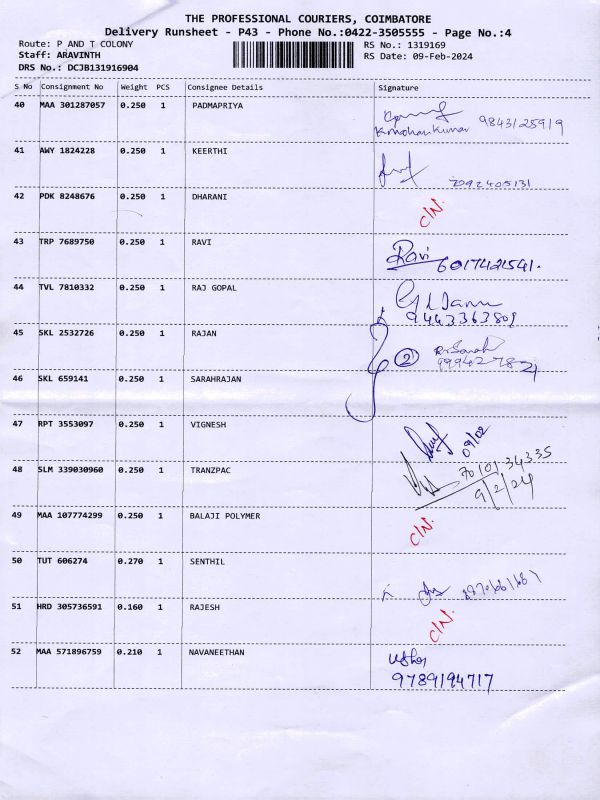 THE PROFESSIONAL COURIERS, COIMBATORE
Delivery Runsheet - P43 - Phone No.:0422-3505555 - Page No.:4
Route: P AND T COLONY RS No.: 1319169
Staff: ARAVINTH RS Date: 09-Feb-2024
DRS No.: DCJB131916904
S No Consignment No Weight PCS Consignee Details Signature
40 MAA 301287057 0.250 1 PADMAPRIYA
K.mohan Kumar 9843125919
41 AWY 1824228 0.250 1 KEERTHI
7092405131
42 PDK 8248676 0.250 1 DHARANI
C/N.
43 TRP 7689750 0.250 1 RAVI
Ravi 6017421541.
44 TVL 7810332 0.250 1 RAJ GOPAL
9443363809
45 SKL 2532726 0.250 1 RAJAN
2
46 SKL 659141 0.250 1 SARAHRAJAN
47 RPT 3553097 0.250 1 VIGNESH
09/02
48 SLM 339030960 0.250 1 TRANZPAC
70101 34335
9/2/24
49 MAA 107774299 0.250 1 BALAJI POLYMER
C/N.
50 TUT 606274 0.270 1 SENTHIL
51 HRD 305736591 0.160 1 RAJESH
C/N.
52 MAA 571896759 0.210 1 NAVANEETHAN
Usha
9789194717